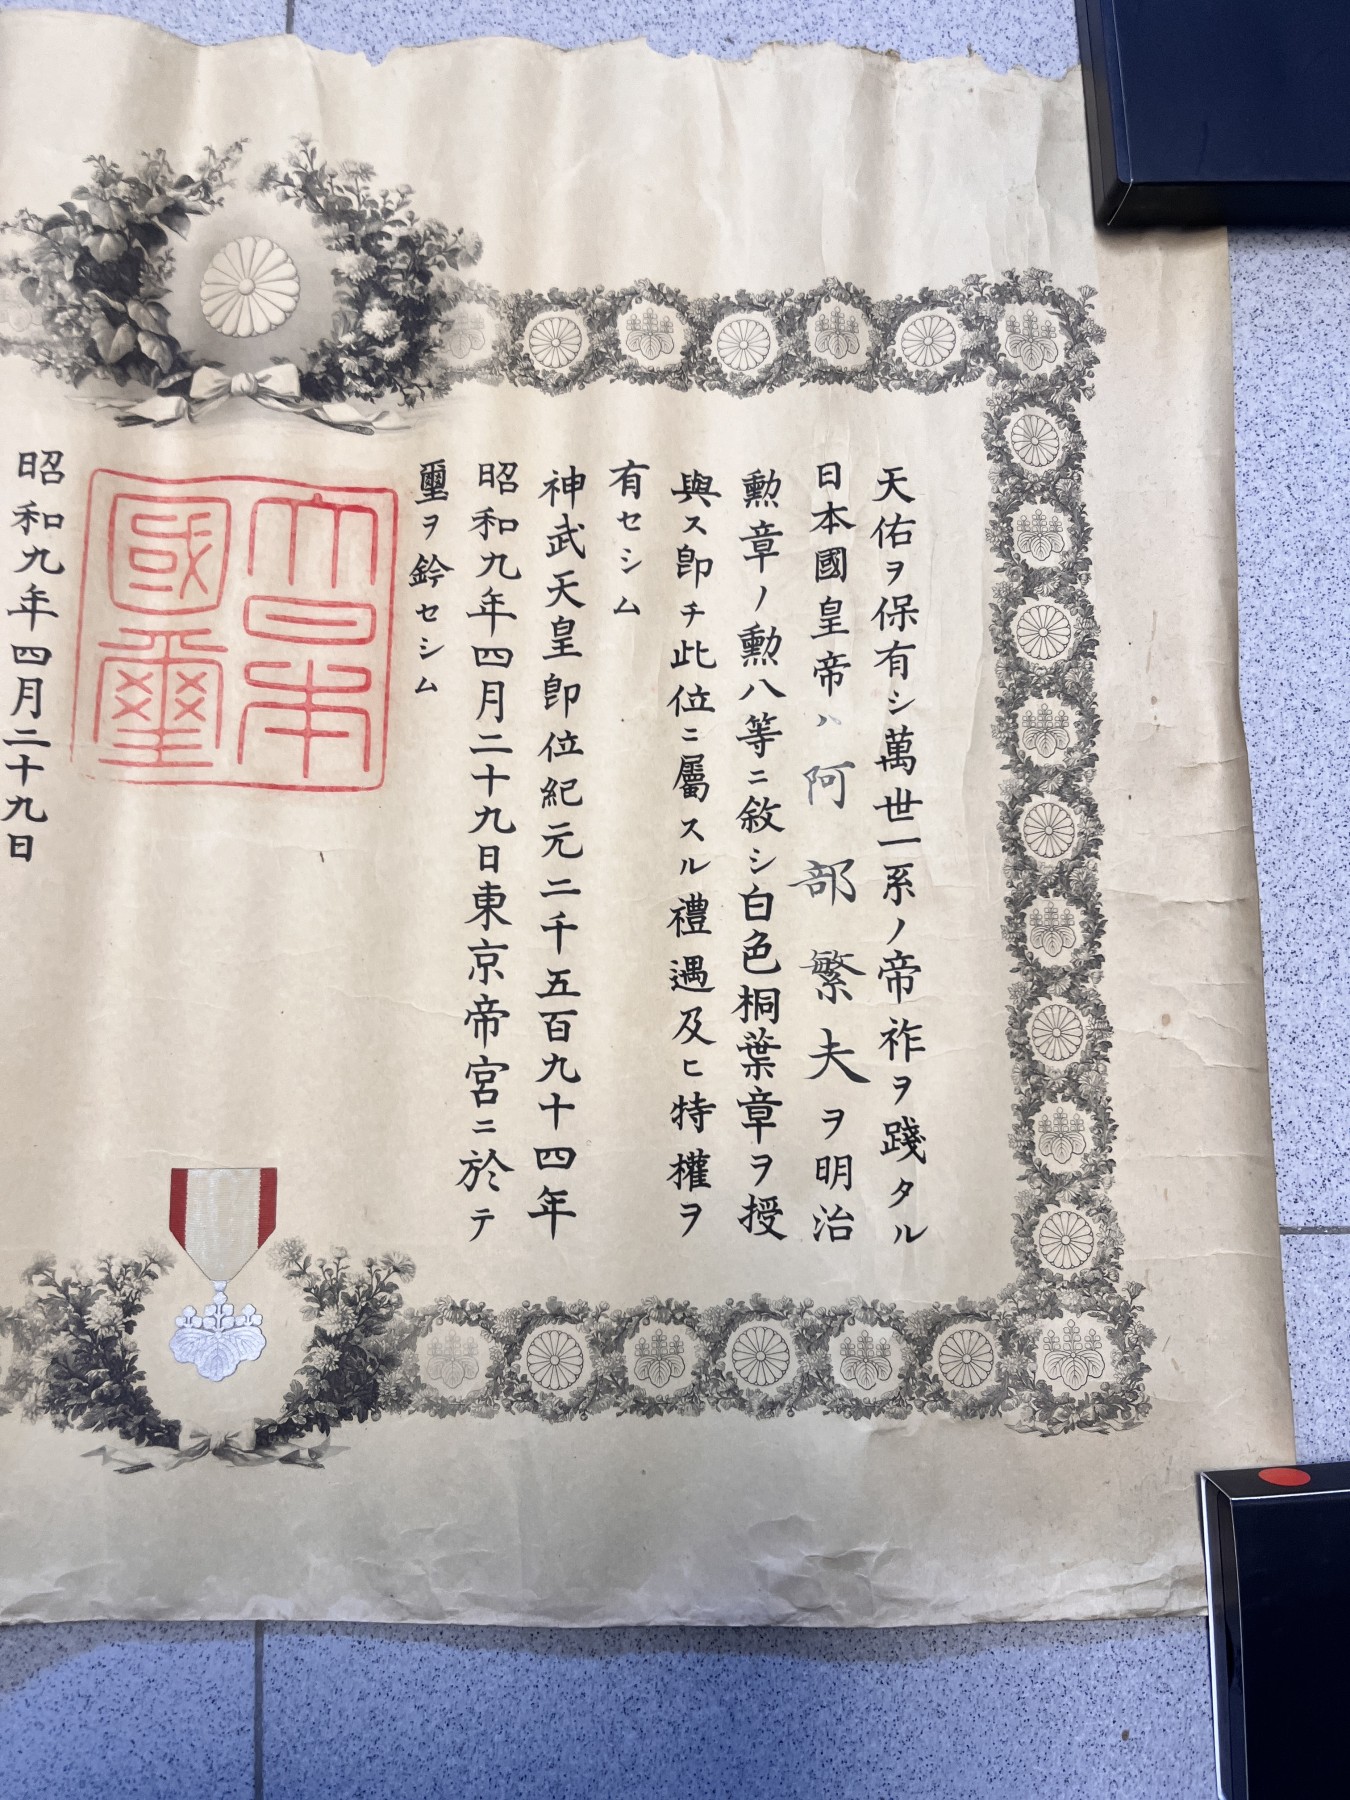 天佑ヲ保有シ萬世一系ノ帝祚ヲ踐タル
日本國皇帝ハ阿部繁夫ヲ明治
勲章ノ勲八等ニ敘シ白色桐葉章ヲ授
與ス卽チ此位ニ屬スル禮遇及ヒ特權ヲ
有セシム
神武天皇卽位紀元二千五百九十四年
昭和九年四月二十九日東京帝宮ニ於テ
璽ヲ鈐セシム
大日本
國璽
昭和九年四月二十九日